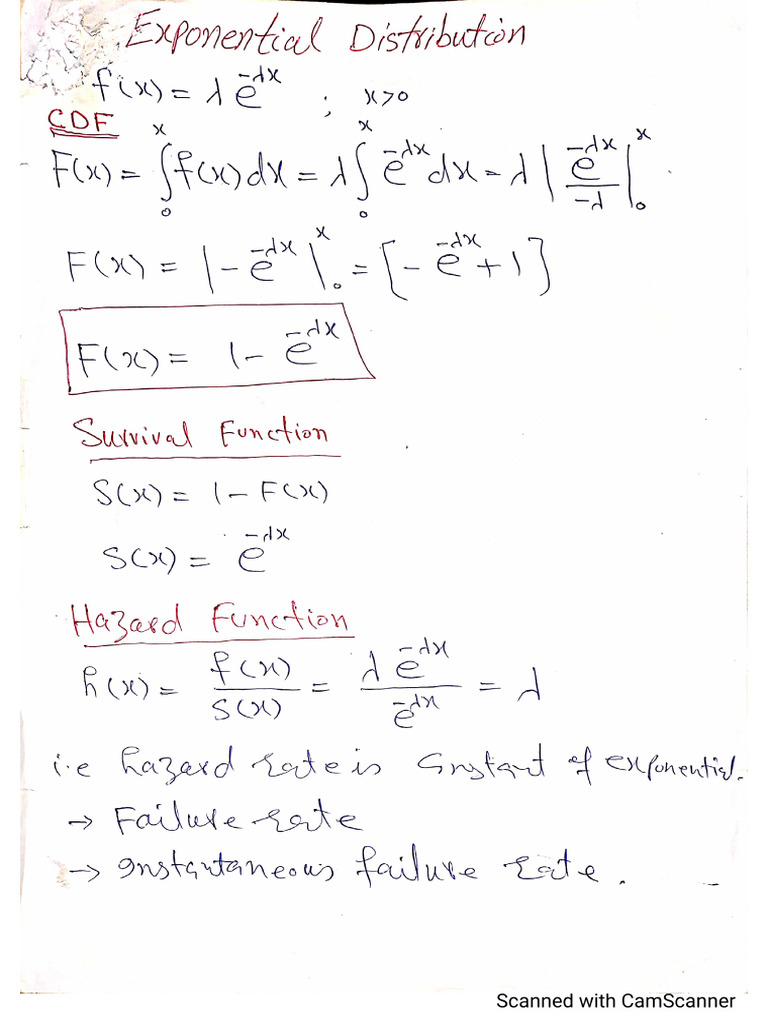 Exponential Distribution
f(x) = λ e^{-λx} ; x>0
CDF
F(x) = ∫_0^x f(x) dx = λ ∫_0^x e^{-λx} dx = λ | e^{-λx} / -λ |_0^x
F(x) = | - e^{-λx} |_0^x = [ - e^{-λx} + 1 ]
F(x) = 1 - e^{-λx}
Survival Function
S(x) = 1 - F(x)
S(x) = e^{-λx}
Hazard Function
h(x) = f(x) / S(x) = λ e^{-λx} / e^{-λx} = λ
i.e hazard rate is Constant of exponential.
→ Failure rate
→ Instantaneous failure rate.
Scanned with CamScanner